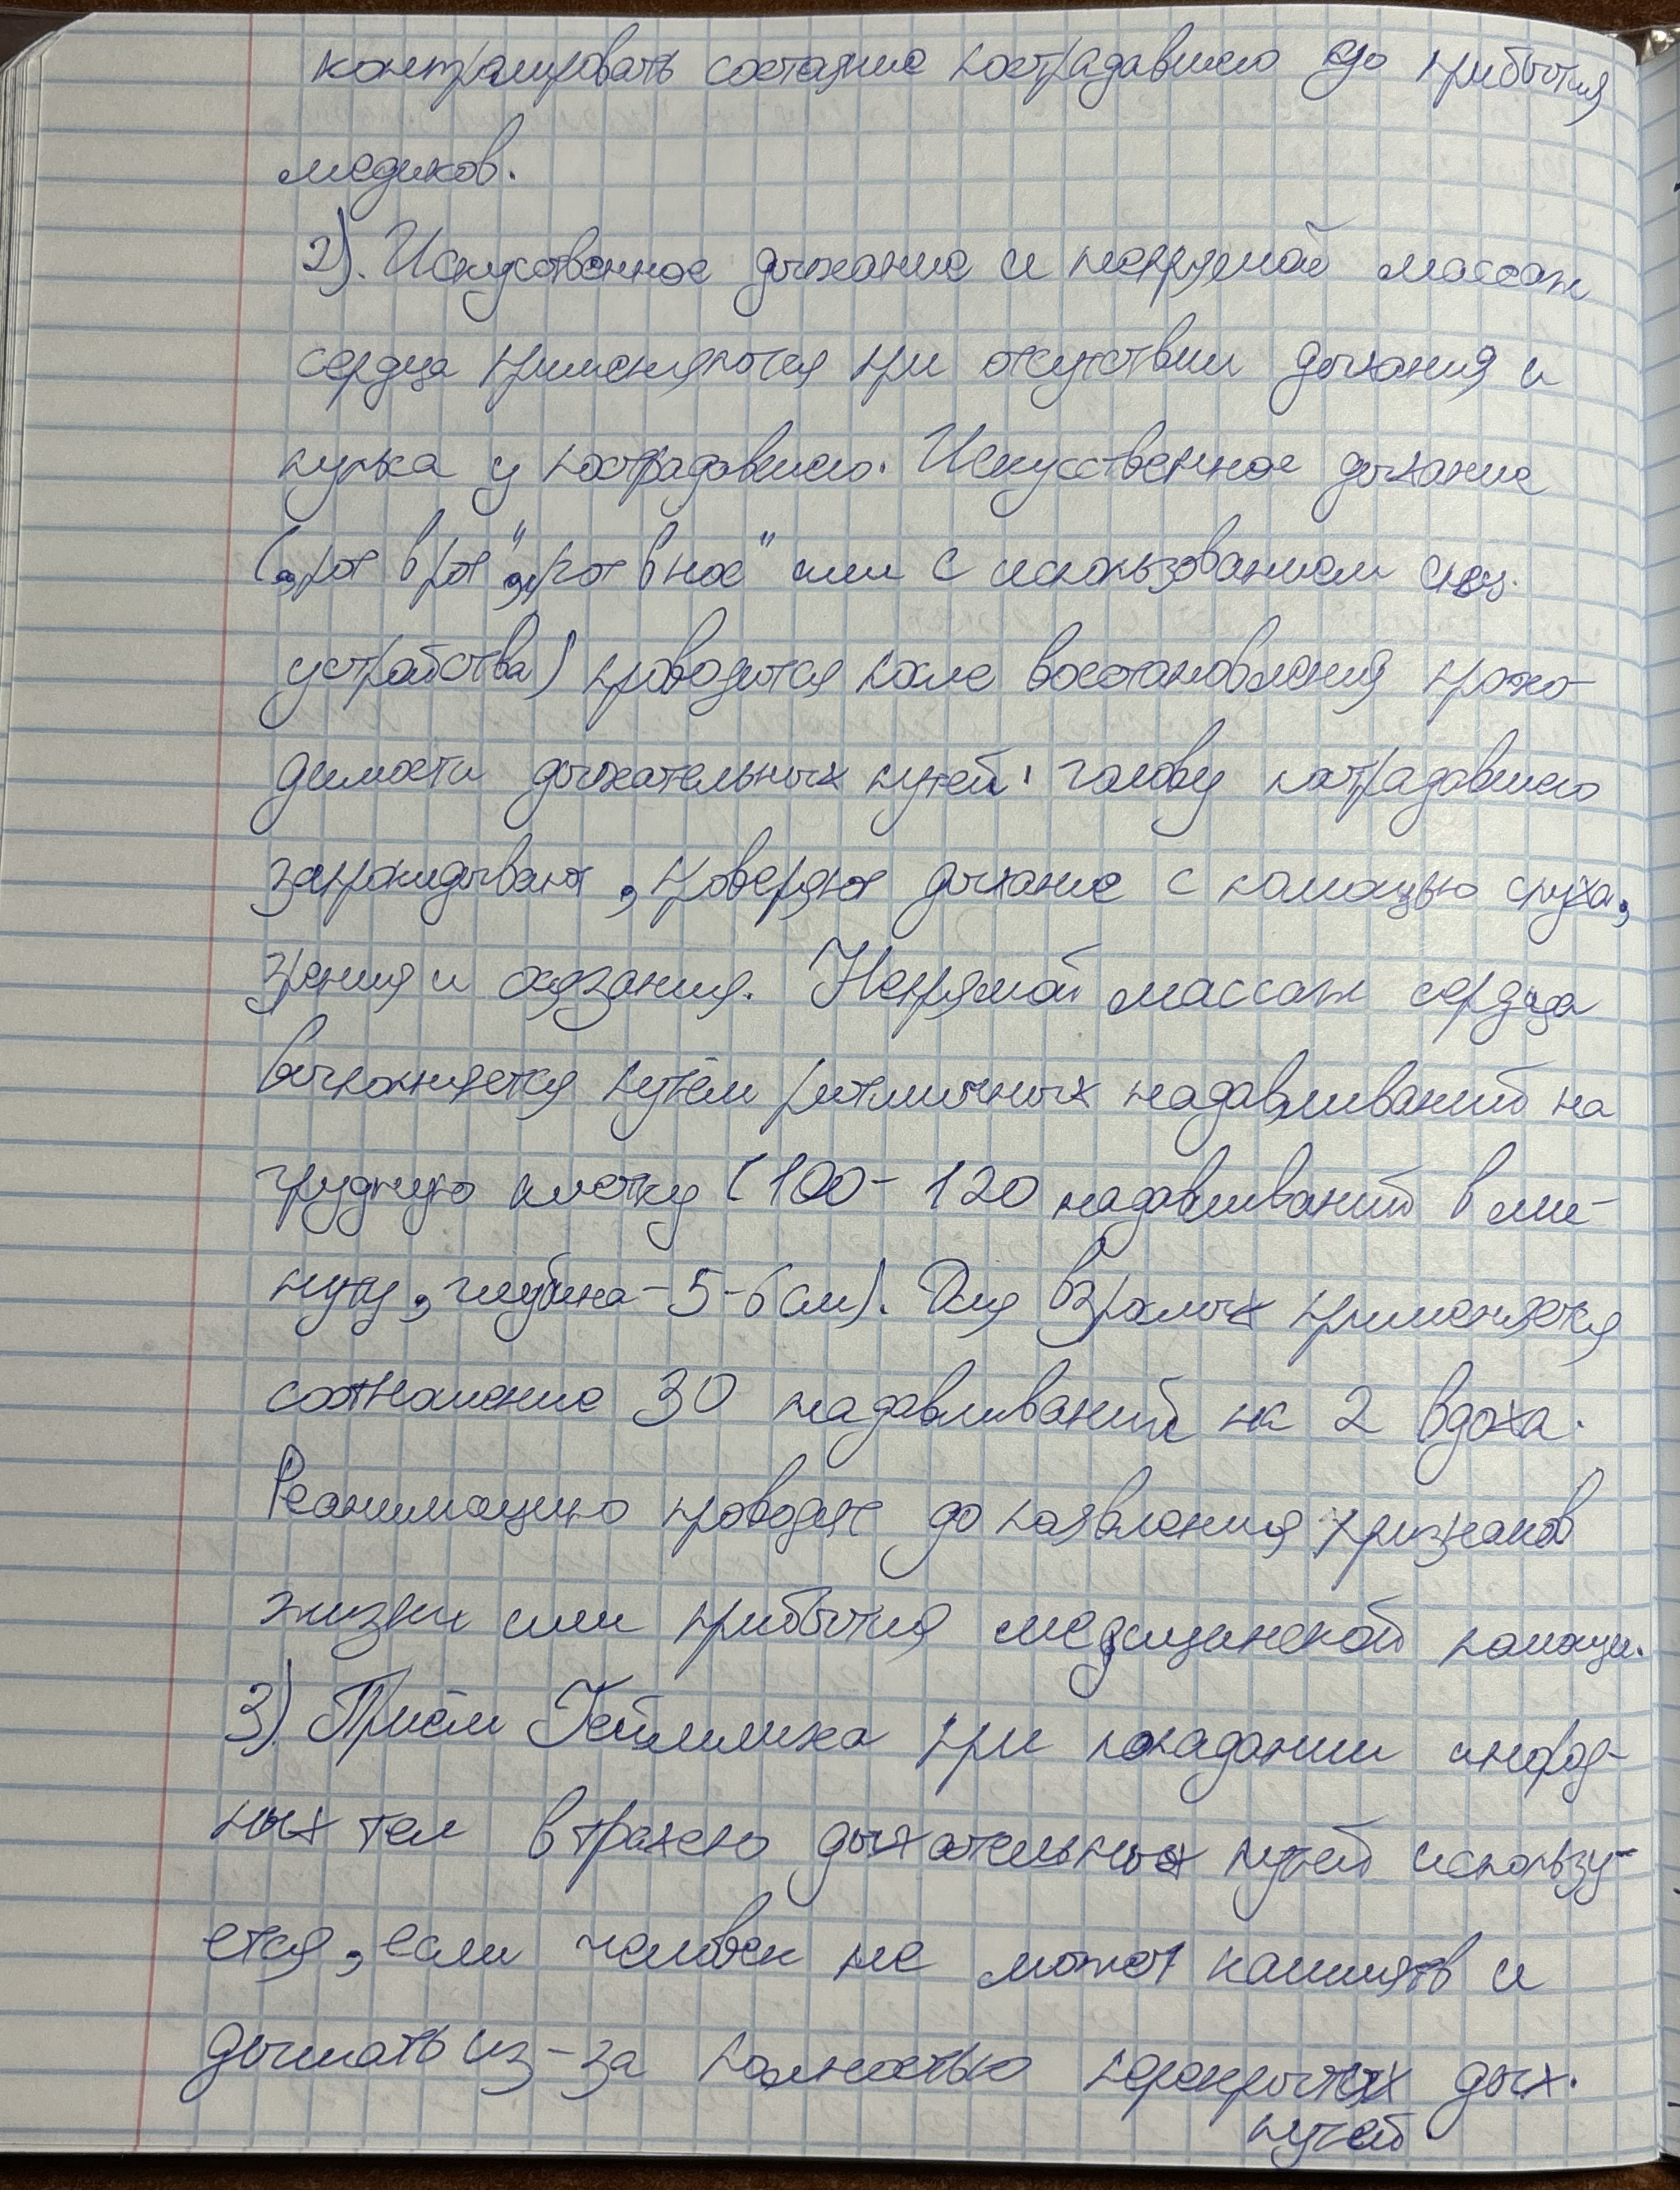 контролировать состояние пострадавшего до прибытия
медиков.
2). Искуственное дыхание и непрямой массаж
сердца применяются при отсутствии дыхания и
пульса у пострадавшего. Искусственное дыхание
(„рот в рот", „рот в нос" или с использованием спец.
устройства) проводится после восстановления прохо-
димости дыхательных путей: голову пострадавшего
запрокидывают, проверяют дыхание с помощью слуха,
зрения и осязания. Непрямой массаж сердца
выполняется путём ритмичных надавливаний на
грудную клетку (100-120 надавливаний в ми-
нуту, глубина - 5-6 см). Для взрослых применяется
соотношение 30 надавливаний на 2 вдоха.
Реанимацию проводят до появления признаков
жизни или прибытия медицинской помощи.
3) Приём Геймлиха при попадании инород-
ных тел в трахею дыхательных путей использу-
ется, если человек не может кашлять и
дышать из-за полностью перекрытых дых.
путей